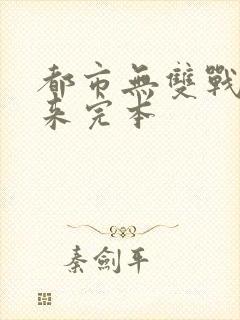 都市無雙戰
未完本
秦劍平